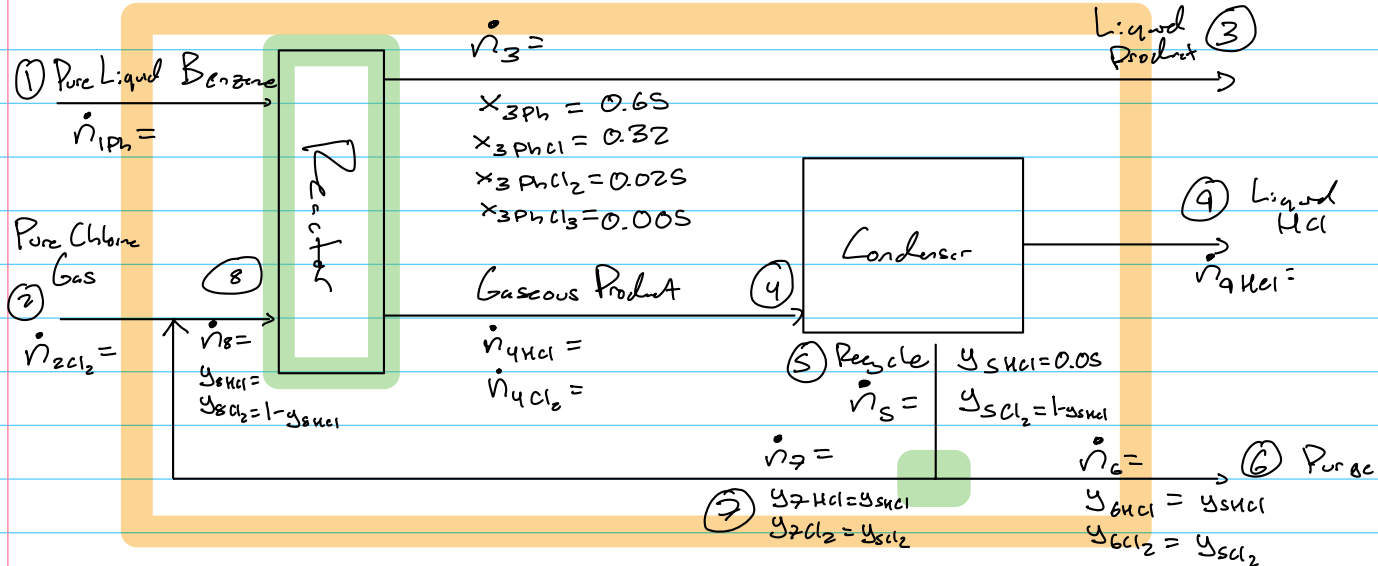 ① Pure Liquid Benzene
ṅ1Ph =
Pure Chlorine
Gas
②
ṅ2Cl2 =
⑧
ṅ8 =
y8HCl =
y8Cl2 = 1-y8HCl
Reactor
ṅ3 =
x3Ph = 0.65
x3PhCl = 0.32
x3PhCl2 = 0.025
x3PhCl3 = 0.005
Liquid
Product ③
Gaseous Product ④
ṅ4HCl =
ṅ4Cl2 =
Condenser
⑨ Liquid
HCl
ṅ9HCl =
⑤ Recycle
ṅ5 =
y5HCl = 0.05
y5Cl2 = 1-y5HCl
ṅ7 =
⑦ y7HCl = y5HCl
y7Cl2 = y5Cl2
ṅ6 =
⑥ Purge
y6HCl = y5HCl
y6Cl2 = y5Cl2